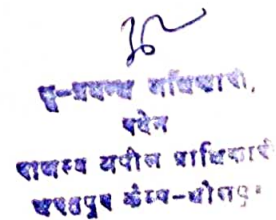 भू-प्रबन्ध अधिकारी,
पदेन
राजस्व अपील अधिकारी
भरतपुर कैम्प-धौलपुर